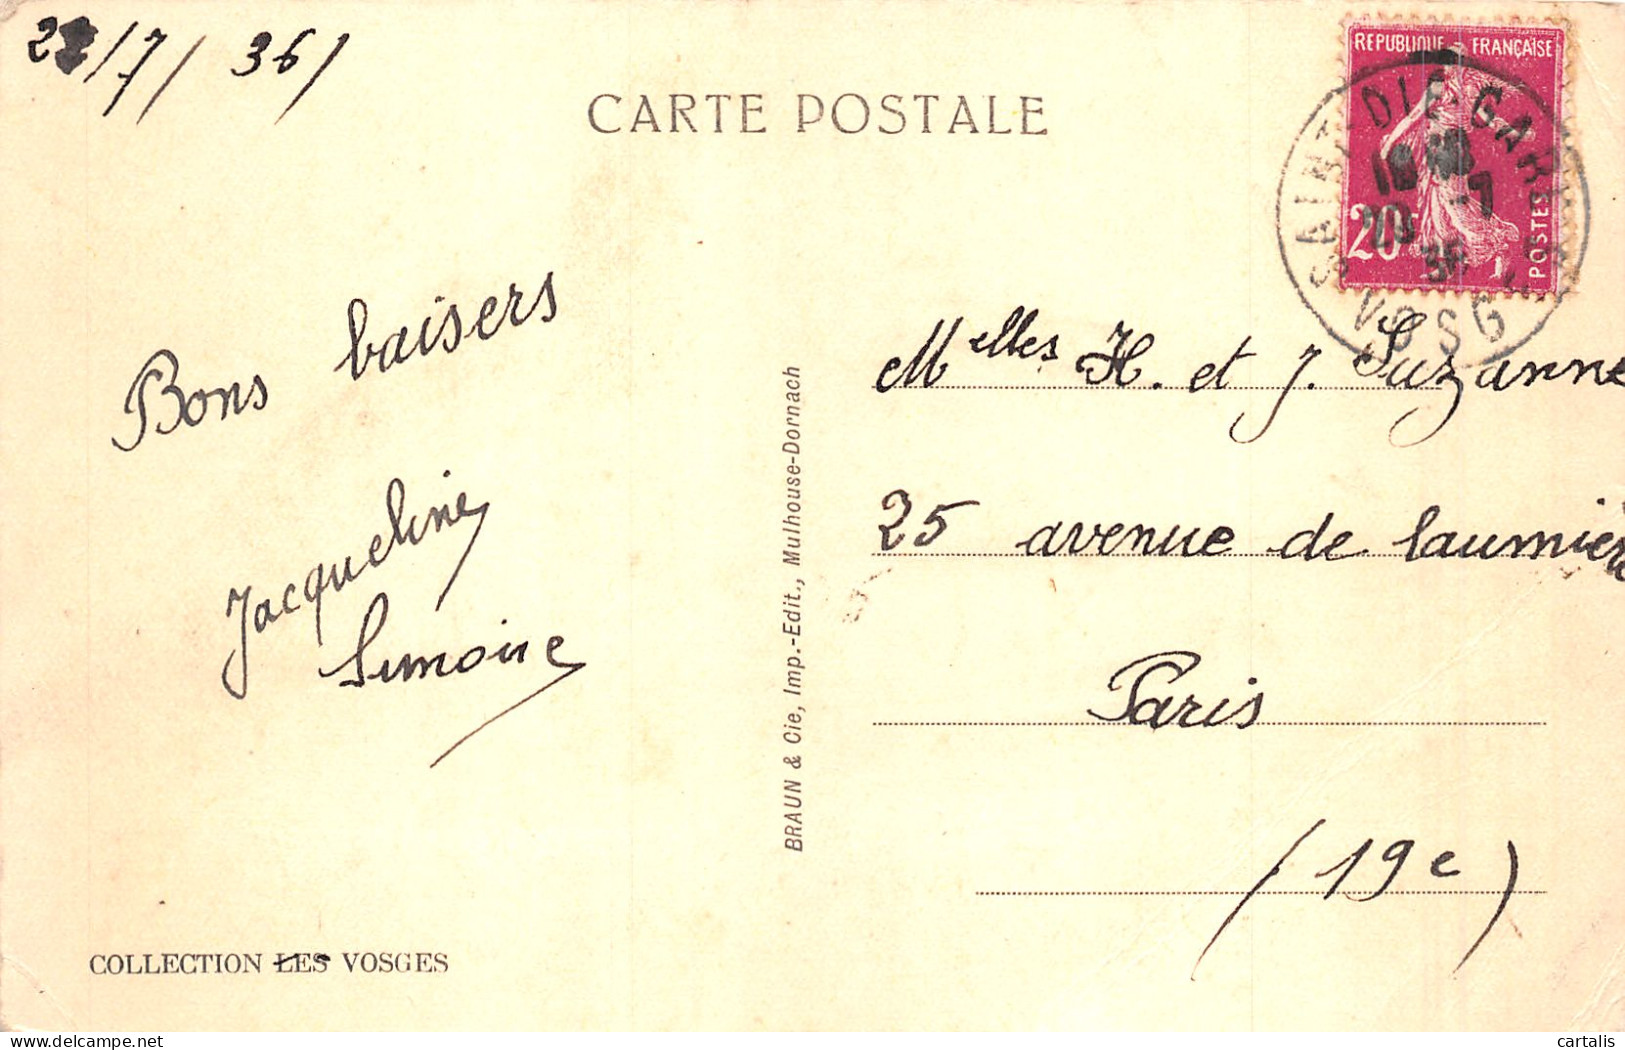 /7/ 36/
CARTE POSTALE
REPUBLIQUE FRANÇAISE
20c
POSTES
SAINT-DIÉ-GARE
-7
36
VOSGES
Bons baisers
Jacqueline
Simone
Melles H. et J. Suzanne
25 avenue de laumière
Paris
(19e)
BRAUN & Cie, Imp.-Edit., Mulhouse-Dornach
COLLECTION LES VOSGES
cartalis
© delcampe.net